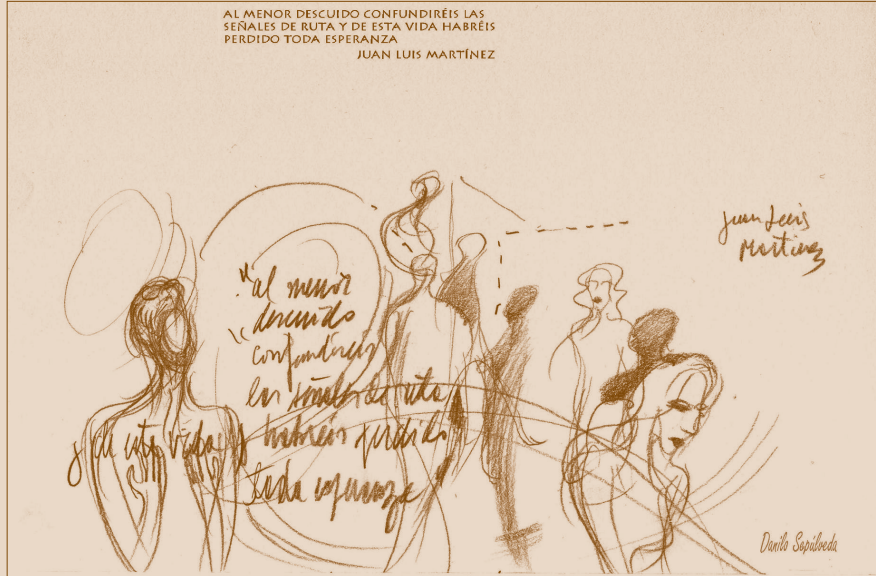 AL MENOR DESCUIDO CONFUNDIRÉIS LAS
SEÑALES DE RUTA Y DE ESTA VIDA HABRÉIS
PERDIDO TODA ESPERANZA
JUAN LUIS MARTÍNEZ
Juan Luis
Martínez
"al menor
descuido
confundiréis
las señales de ruta
y de esta vida habréis perdido
toda esperanza"
Danilo Sepúlveda